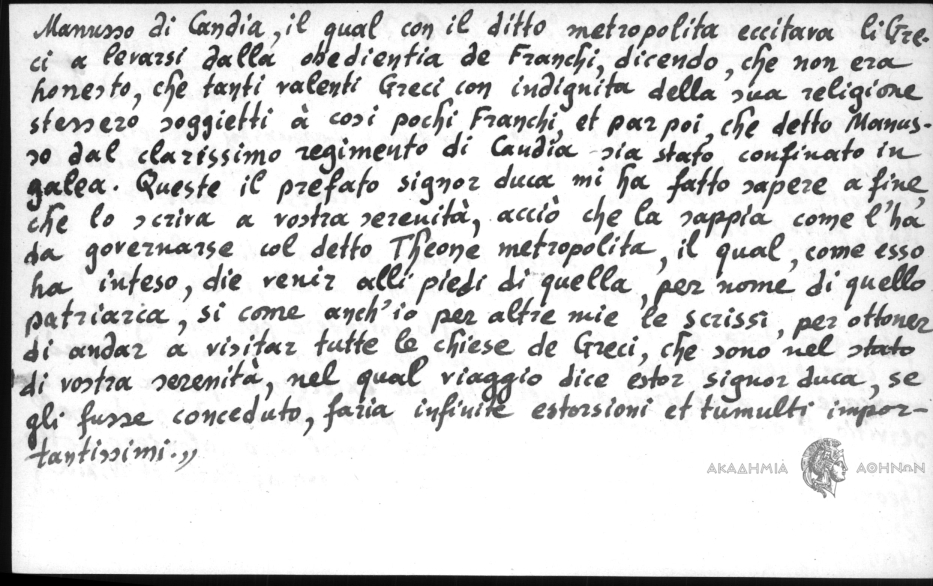 Manusso di Candia, il qual con il ditto metropolita eccitava li Gre-
ci a levarsi dalla obedientia de Franchi, dicendo, che non era
honesto, che tanti valenti Greci con indignita della sua religione
stessero soggietti à cosi pochi Franchi, et par poi, che detto Manus-
so dal clarissimo regimento di Candia sia stato confinato in
galea. Queste il prefato signor duca mi ha fatto sapere a fine,
che lo scriva a vostra serenità, acciò che la sappia come l'ha
da governarse col detto Theone metropolita, il qual, come esso
ha inteso, die venir alli piedi di quella, per nome di quello
patriarca, si come anch'io per altre mie le scrissi, per ottener
di andar a visitar tutte le chiese de Greci, che sono nel stato
di vostra serenità, nel qual viaggio dice estor signor duca, se
gli fusse conceduto, faria infinite estorsioni et tumulti impor-
tantissimi.,,
ΑΚΑΔΗΜΙΑ ΑΘΗΝΩΝ